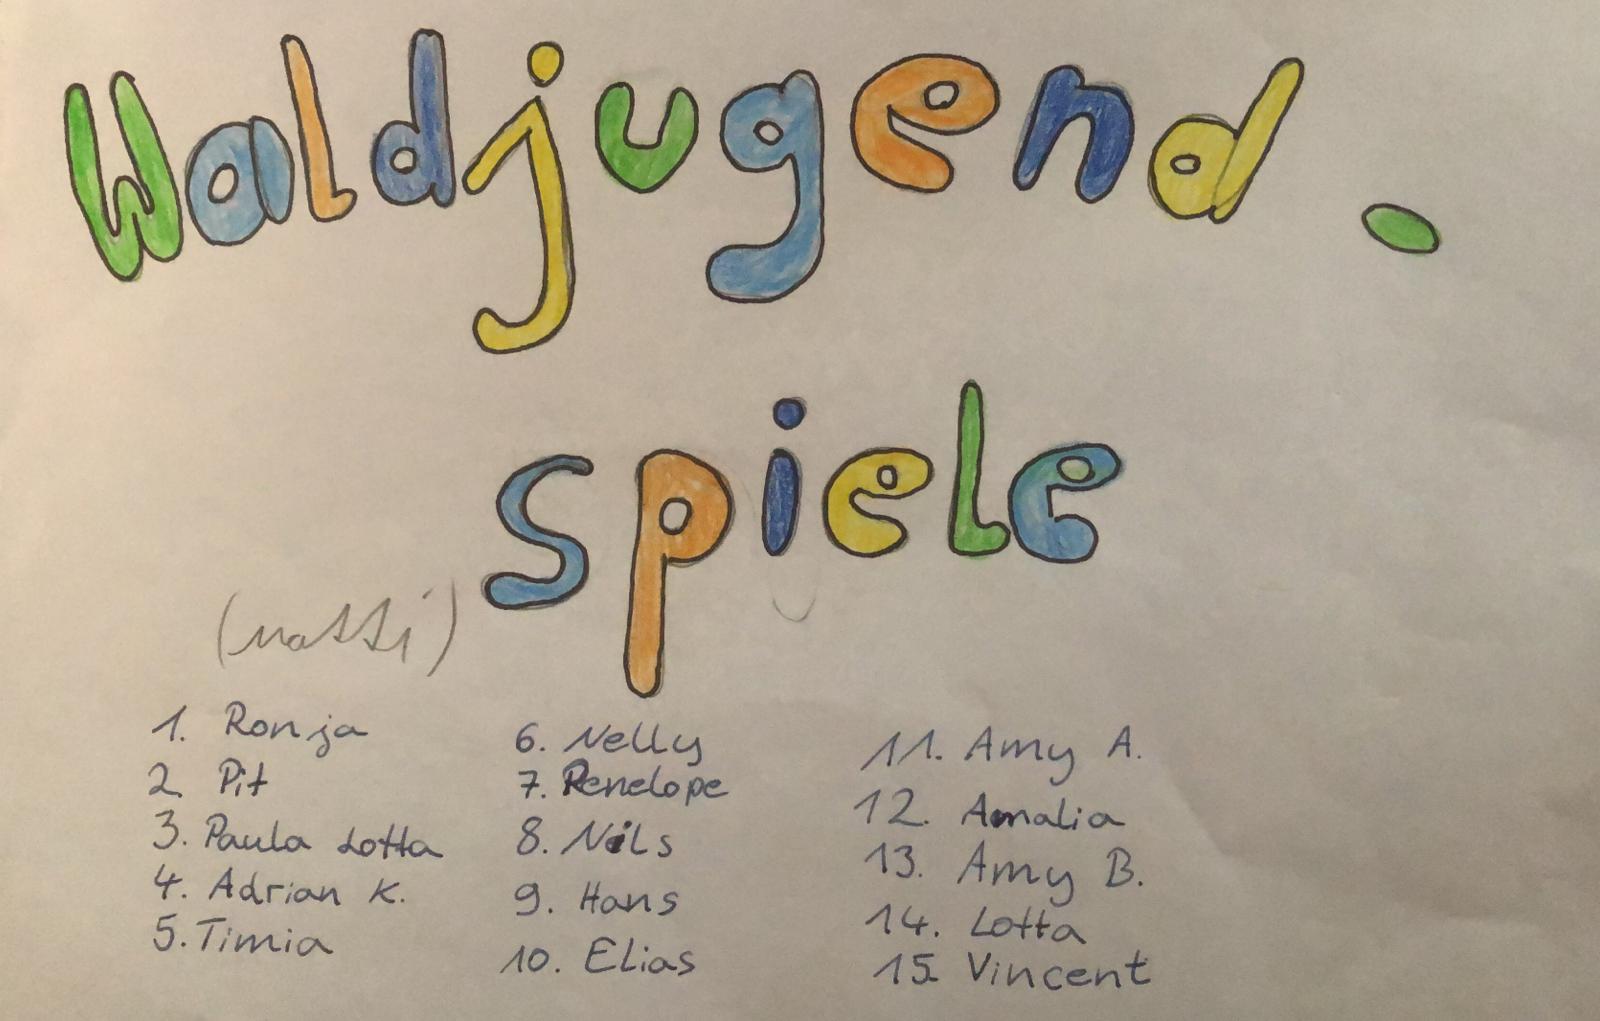 Waldjugend-
spiele
1. Ronja
2. Pit
3. Paula Lotta
4. Adrian K.
5. Timia
6. Nelly
7. Penelope
8. Nils
9. Hans
10. Elias
11. Amy A.
12. Amalia
13. Amy B.
14. Lotta
15. Vincent